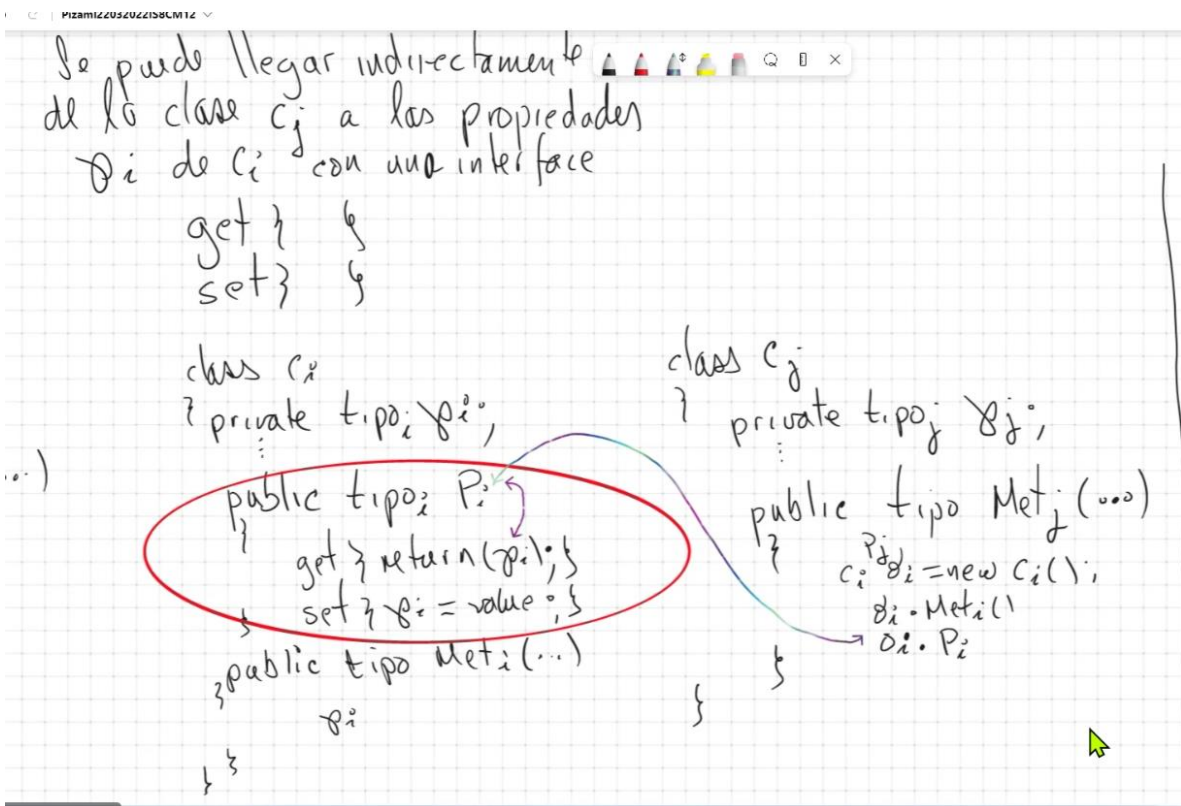 Pizami22032022IS8CM12
Se puede llegar indirectamente
de la clase Cj a las propiedades
pi de Ci con una interface
get { }
set { }
class Ci
{ private tipoi pi;
⋮
...)
public tipoi Pi
{
get { return(pi); }
set { pi = value; }
}
public tipo Meti(...)
{
pi
}
}
class Cj
{ private tipoj pj;
⋮
public tipo Metj(...)
{
Pj
Ci oi = new Ci();
oi.Meti()
oi.Pi
}
}